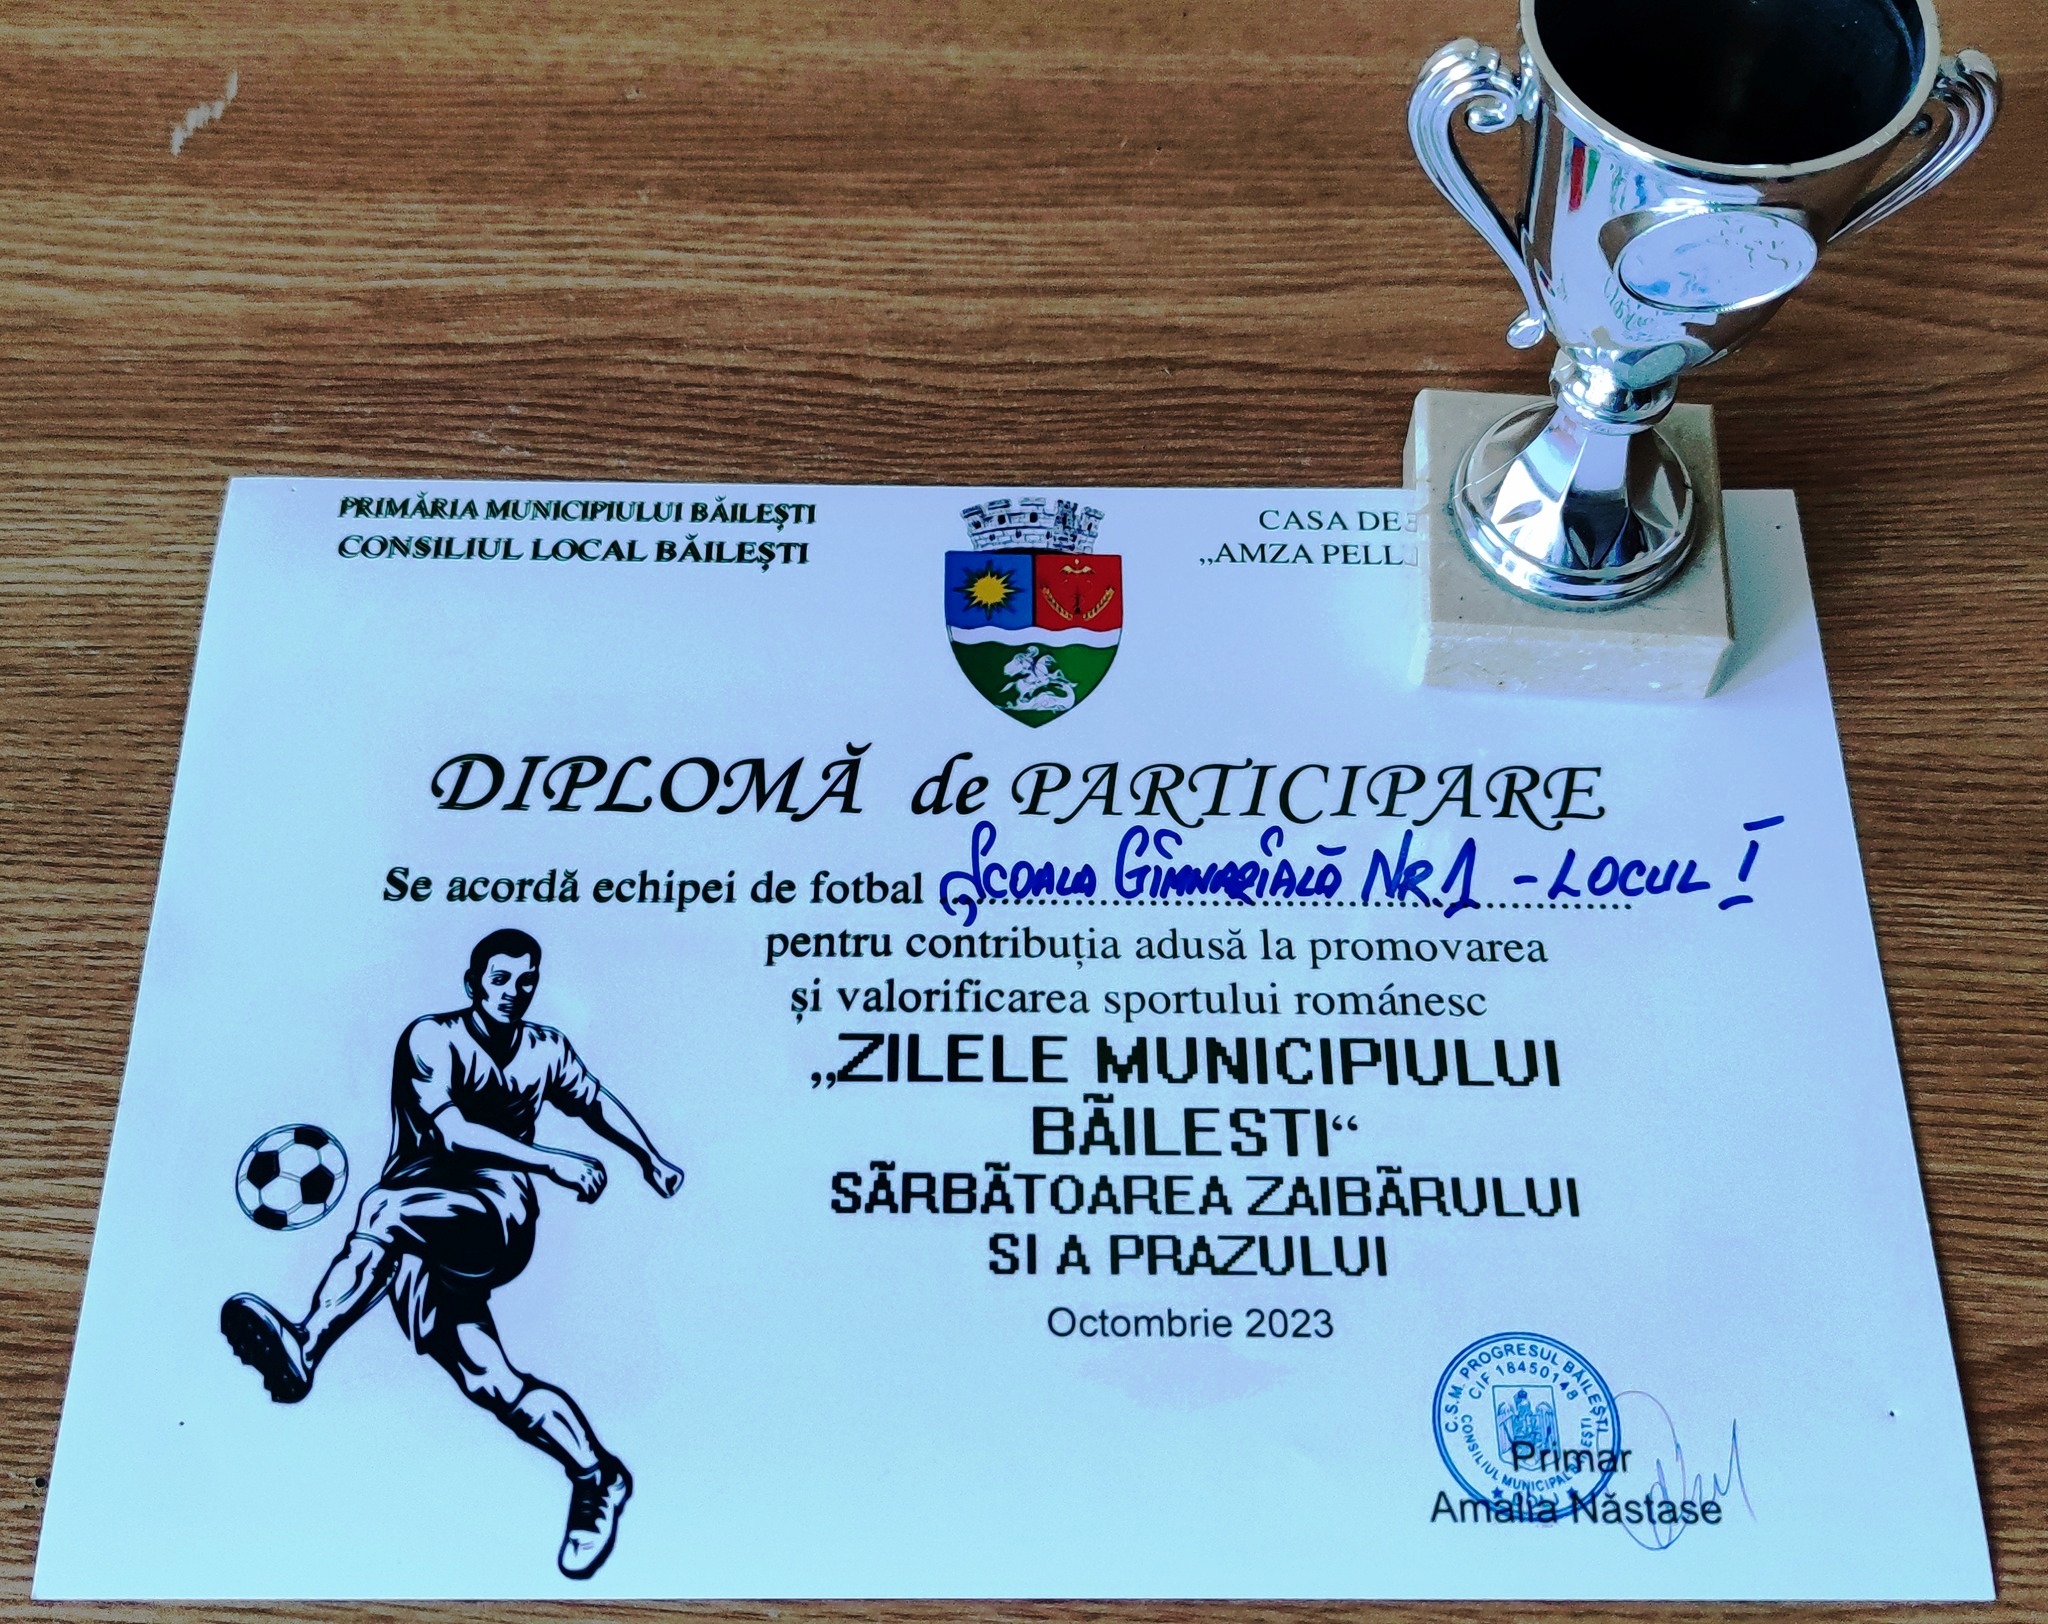 PRIMĂRIA MUNICIPIULUI BĂILEȘTI
CONSILIUL LOCAL BĂILEȘTI
CASA DE
„AMZA PELL
DIPLOMĂ de PARTICIPARE
Se acordă echipei de fotbal ȘCOALA GIMNAZIALĂ NR.1 - LOCUL I
pentru contribuția adusă la promovarea
și valorificarea sportului românesc
„ZILELE MUNICIPIULUI
BÃILESTI“
SÃRBÃTOAREA ZAIBÃRULUI
SI A PRAZULUI
Octombrie 2023
C.S.M. PROGRESUL BĂILEȘTI
CIF 18450148
CONSILIUL MUNICIPAL
Primar
Amalia Năstase